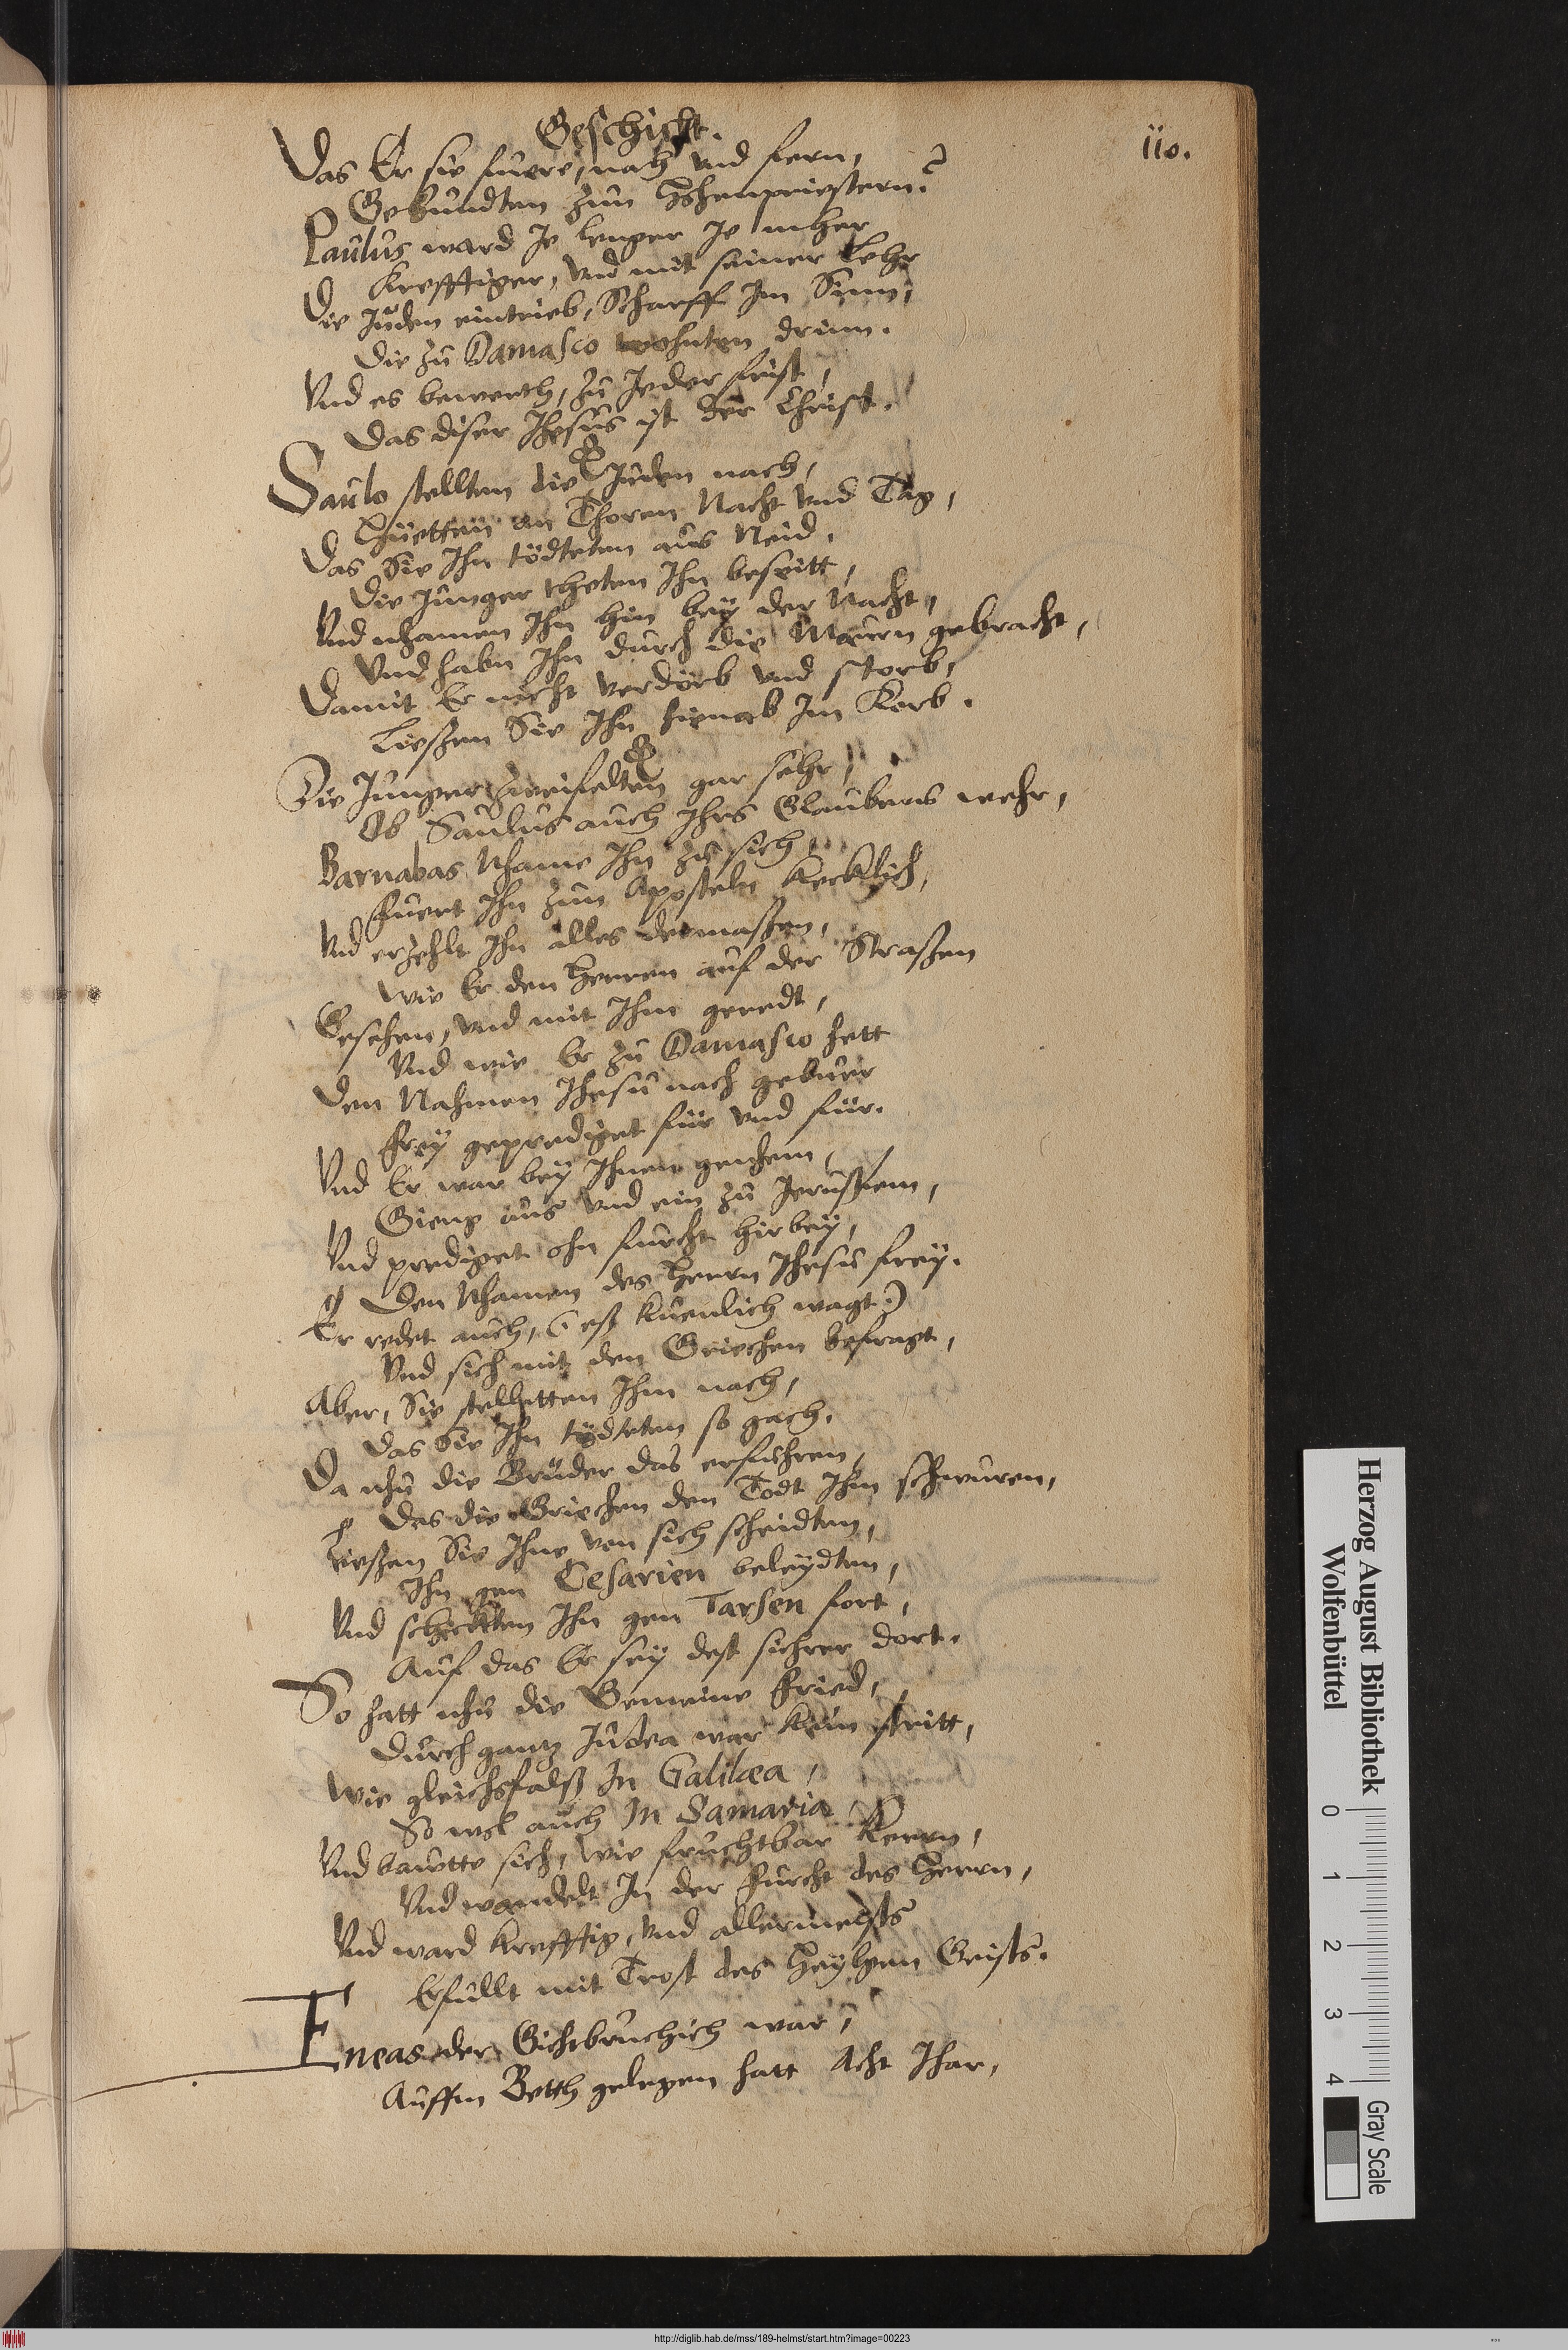 Geschicht.
110.
Das Er sie fuere, nach vnd fern,
Gebundten zun Hohenpriestern?
Paulus ward Je lenger Je mher
Krefftiger, vnd mit seiner Lehr
Die Juden eintrieb, Scharff Im Sinn,
Die zu Damasco wohnten drinn.
Vnd es bewerth, zu Jeder frist,
Das diser Jhesus ist der Christ.
Saulo stellten die Juden nach,
Hüetten an Thoren Nacht vnd Tag,
Das Sie Ihn tödteten aus Neid.
Die Junger theten Ihn beseitt,
Vnd nhamen Ihn hin bey der Nacht,
Vnd habn Ihn durch die Maurn gebracht,
Damit Er nicht verdörb vnd storb,
Ließen Sie Ihn hienab Im Korb.
Die Junger zweifelten gar sehr,
Ob Saulus auch Ihrs Glaubens wehr,
Barnabas Nhame Ihn zu sich,
Fuert Ihn zun Aposteln Kecklich,
Vnd erzehlt Ihn alles dermaßen,
Wie Er den Herren auf der Straßen
Gesehen, vnd mit Ihm geredt,
Vnd wie Er zu Damasco hett
Den Nahmen Jhesu nach gebuer
Frey geprediget für vnd für.
Vnd Er war bey Ihnen
Gieng aus vnd ein zu
Vnd prediget ohn furcht hirbey,
Den Nhamen des Herrn Jhesu frey.
Er redet auch, (est kuenlich wagt)
Vnd sich mit den Griechen befragt,
Aber, Sie stelletten Ihm nach,
Das Sie Ihn tödteten so gach.
Da nhu die Brüder das erfuhren,
Das die Griechen den Todt Ihm schwuren,
Ließen Sie Ihne von sich scheidten,
Ihn gen Cesarien beleydten,
Vnd schickten Ihn gen Tarsen fort,
Auf das Er sey dest sichrer dort.
So hatt nhu die Gemeine Fried,
Durch gantz Judea war kein stritt,
Wie gleichsfalß In Galilæa,
So wol auch In Samaria,
Vnd bawtte sich, wie fruchtbar Kern,
Vnd wandelt In der Furcht des Herrn,
Vnd ward krefftig, vnd allermeists
Erfullt mit Trost des Heylgen Geists.
Eneas der Gichtbruchich war,
Auffm Betth gelegen hatt Acht Jhar,
Herzog August Bibliothek
Wolfenbüttel
0 1 2 3 4
Gray Scale
http://diglib.hab.de/mss/189-helmst/start.htm?image=00223